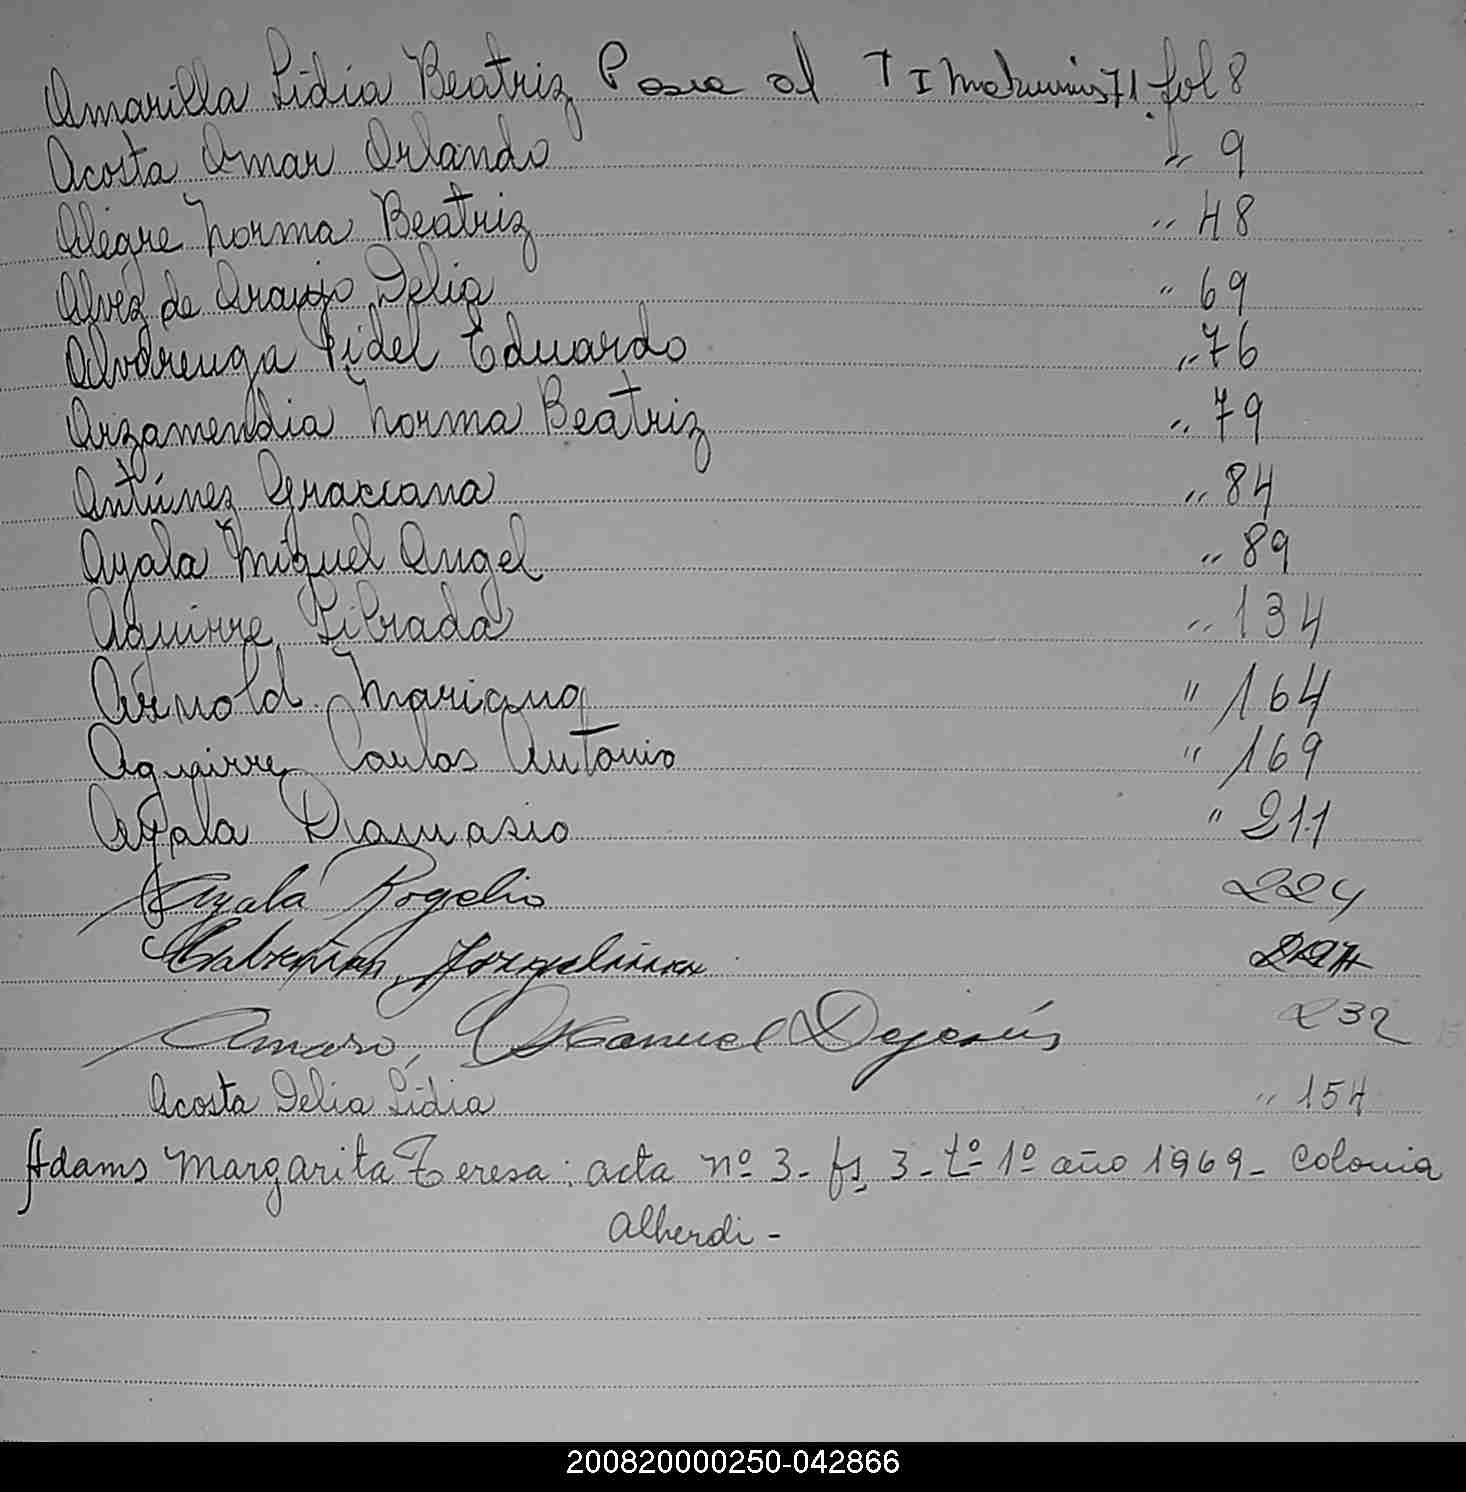 Amarilla Lidia Beatriz Pasa al T I fol 8
Acosta Omar Orlando " 9
Alegre Norma Beatriz " 48
Alvez de Araujo Delia " 69
Alvarenga Fidel Eduardo " 76
Arzamendia Norma Beatriz " 79
Antúnez Graciana " 84
Ayala Miguel Angel " 89
Aguirre Librada " 134
Arnold Mariana " 164
Aguirre Carlos Antonio " 169
Ayala Damasio " 211
Ayala Rogelio 224
Jorgelina
Amaro, Manuel Dejesús 232
Acosta Delia Lidia " 154
Adams Margarita Teresa: acta nº 3- fs, 3- tº 1º año 1969- Colonia
Alberdi -
200820000250-042866